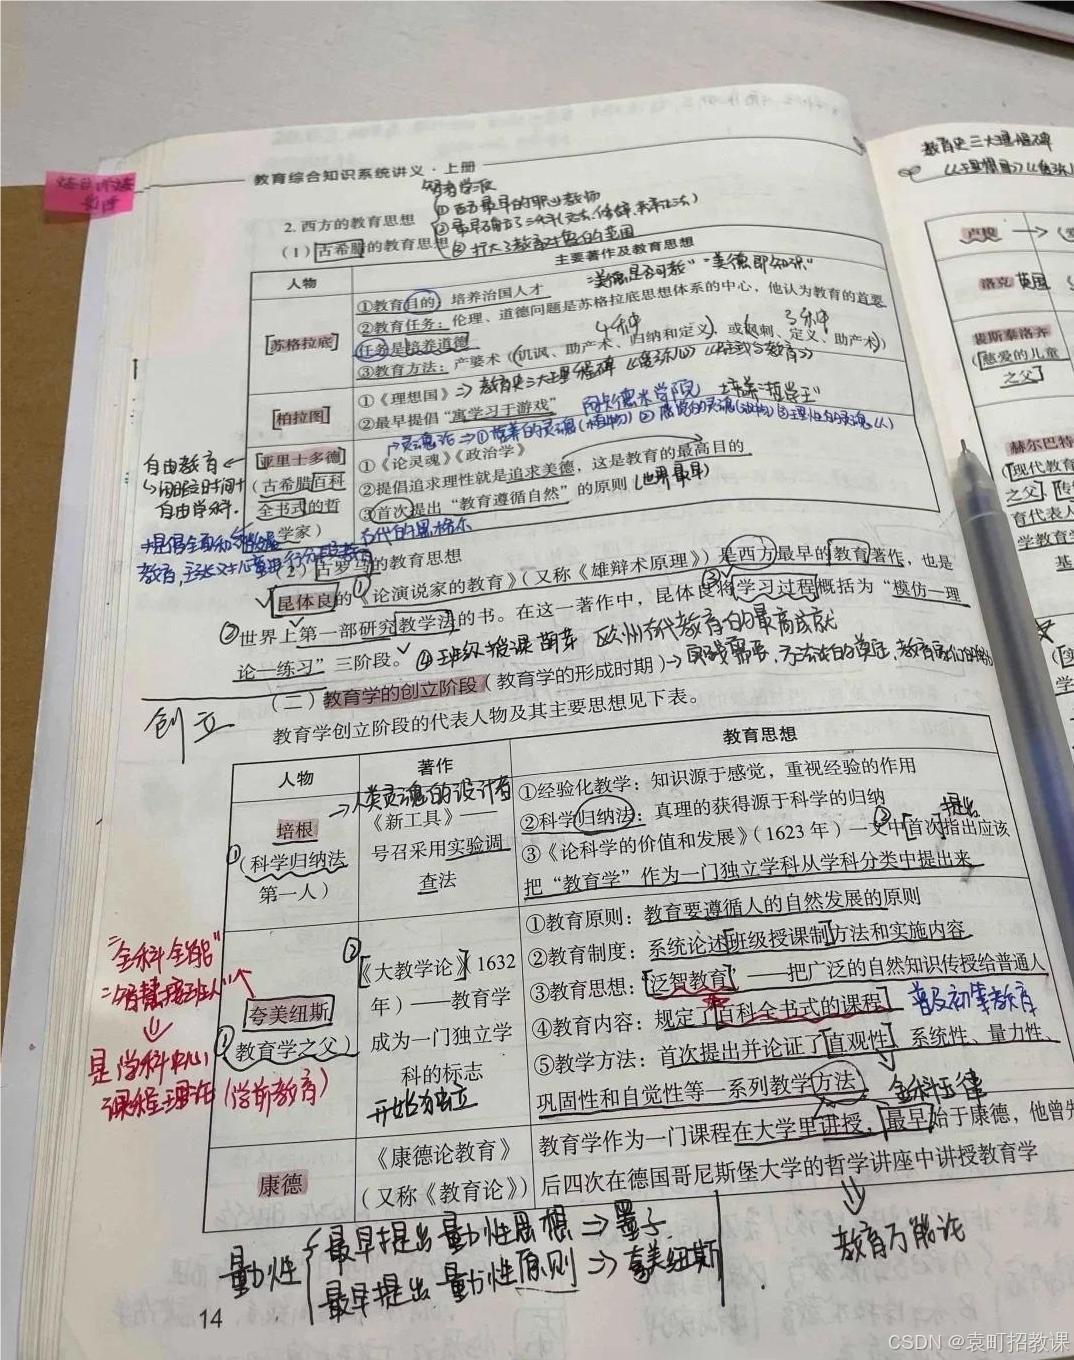 教育综合知识系统讲义·上册
智者学派
①西方最早的职业教师
2. 西方的教育思想
②最早确立了三科(文法、修辞、辩证法)
（1）古希腊的教育思想
③扩大了教育对象的范围
人物
主要著作及教育思想
"美德是否可教" "美德即知识"
苏格拉底
①教育目的：培养治国人才
②教育任务：伦理、道德问题是苏格拉底思想体系的中心，他认为教育的首要
任务是培养道德
4种
3种
③教育方法：产婆术（讥讽、助产术、归纳和定义），或（讽刺、定义、助产术）
柏拉图
①《理想国》→教育史三大里程碑《爱弥儿》《民主主义与教育》
②最早提倡"寓学习于游戏"
阿卡德米学院
培养"哲学王"
灵魂论⇒①营养的灵魂(植物)②感觉的灵魂(动物)③理性的灵魂(人)
亚里士多德
（古希腊百科
全书式的哲
学家）
①《论灵魂》《政治学》
②提倡追求理性就是追求美德，这是教育的最高目的
③首次提出"教育遵循自然"的原则(世界最早)
自由教育
自由学科
古代的黑格尔
（2）古罗马的教育思想
昆体良的①《论演说家的教育》（又称《雄辩术原理》）是西方最早的教育著作，也是
②世界上第一部研究教学法的书。在这一著作中，昆体良将③学习过程概括为"模仿—理
论—练习"三阶段。④班级授课萌芽 欧州古代教育的最高成就
（二）教育学的创立阶段（教育学的形成时期）
创立
教育学创立阶段的代表人物及其主要思想见下表。
人物
著作
教育思想
→人类灵魂的设计者
培根
①（科学归纳法
第一人）
《新工具》——
号召采用实验调
查法
①经验化教学：知识源于感觉，重视经验的作用
②科学归纳法：真理的获得源于科学的归纳
提出
③《论科学的价值和发展》（1623 年）一文中首次指出应该
把"教育学"作为一门独立学科从学科分类中提出来
"全科全能"
"智慧接班人"
是学科中心
课程理论
夸美纽斯
①（教育学之父）
(学前教育)
②《大教学论》（1632
年）——教育学
成为一门独立学
科的标志
开始独立
①教育原则：教育要遵循人的自然发展的原则
②教育制度：系统论述班级授课制方法和实施内容
③教育思想："泛智教育"——把广泛的自然知识传授给普通人
④教育内容：规定了百科全书式的课程
普及初等教育
⑤教学方法：首次提出并论证了直观性、系统性、量力性、
巩固性和自觉性等一系列教学方法
金科玉律
康德
《康德论教育》
（又称《教育论》）
教育学作为一门课程在大学里讲授，最早始于康德，他曾先
后四次在德国哥尼斯堡大学的哲学讲座中讲授教育学
教育万能论
量力性
最早提出量力性思想⇒墨子
最早提出量力性原则⇒夸美纽斯
14
教育史三大里程碑
卢梭
洛克 英国
裴斯泰洛齐
（慈爱的儿童
之父）
赫尔巴特
（现代教育
之父、传
育代表人
学教育学
CSDN @袁町招教课